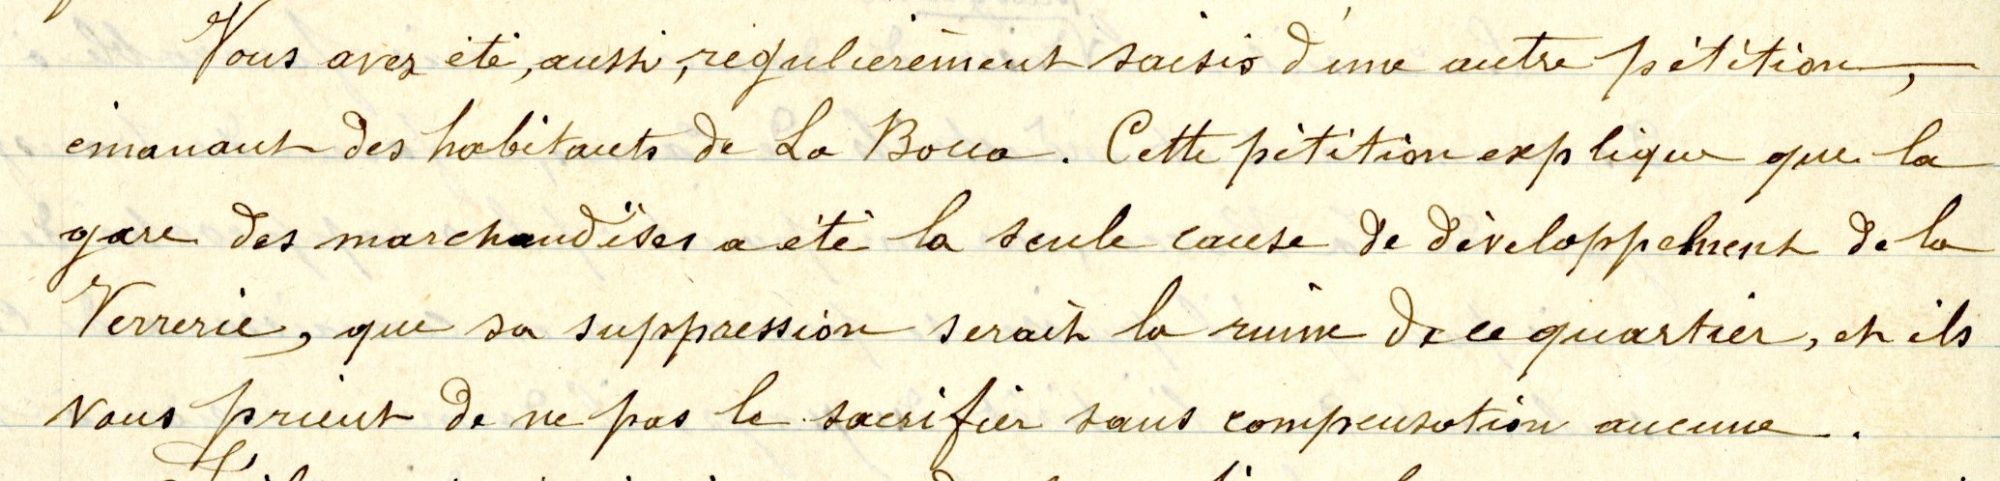 Vous avez été, aussi, régulièrement saisis d'une autre pétition,
émanant des habitants de La Bocca. Cette pétition explique que la
gare des marchandises a été la seule cause de développement de la
Verrerie, que sa suppression serait la ruine de ce quartier, et ils
vous prient de ne pas le sacrifier sans compensation aucune.